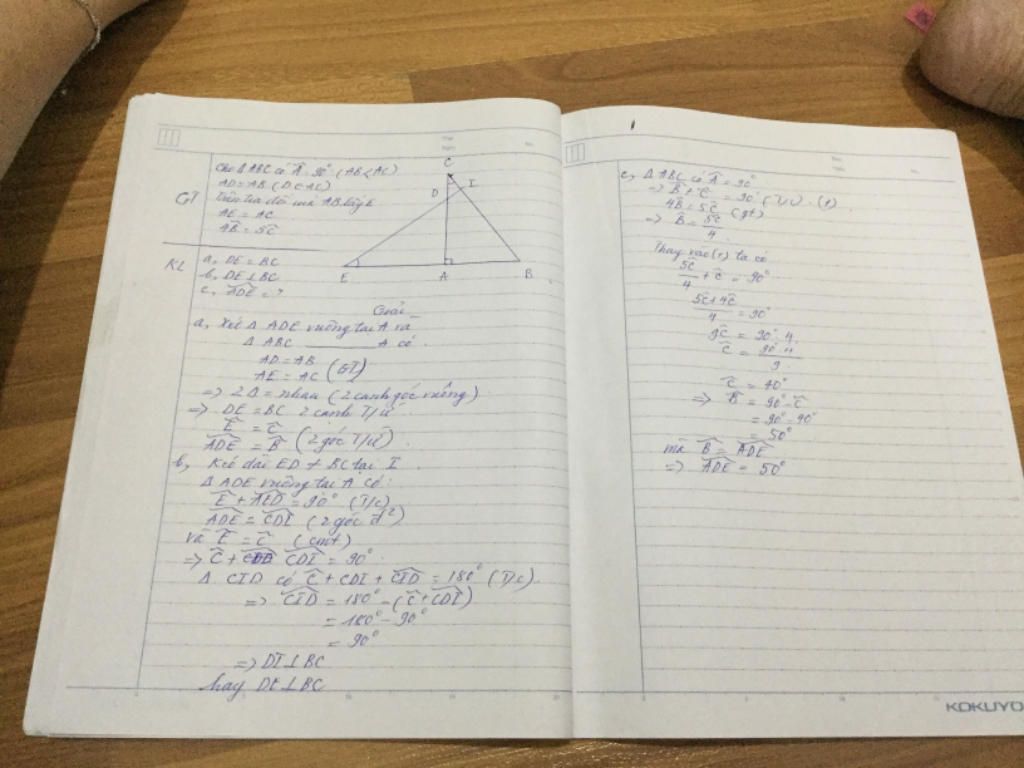 GT
Cho Δ ABC có Â = 90° (AB < AC)
AD = AB (D ∈ AC)
Trên tia đối mà AB lấy E
AE = AC
4B̂ = 5Ĉ
KL
a, DE = BC
b, DE ⊥ BC
c, ADE = ?
C
D
I
E
A
B
Giải
a, Xét Δ ADE vuông tại A và
Δ ABC ______ A có
AD = AB
AE = AC (GT)
=> 2 Δ = nhau (2 cạnh góc vuông)
=> DE = BC 2 cạnh T/ư
Ê = Ĉ
ADE = B̂ (2 góc T/ư)
b, Kéo dài ED ≠ BC tại I
Δ ADE vuông tại A có:
Ê + AED = 90° (T/c)
ADE = CDI (2 góc đ²)
và Ê = Ĉ (cmt)
=> Ĉ + CDI = 90°
Δ CID có Ĉ + CDI + CID = 180° (T/c).
=> CID = 180° - (Ĉ + CDI)
= 180° - 90°
= 90°
=> DI ⊥ BC
hay DE ⊥ BC
c, Δ ABC có Â = 90°
=> B̂ + Ĉ = 90° (T/c). (1)
4B̂ = 5Ĉ (gt)
=> B̂ = 5Ĉ/4
Thay vào (1) ta có
5Ĉ/4 + Ĉ = 90°
5Ĉ + 4Ĉ/4 = 90°
9Ĉ = 90°. 4
Ĉ = 90°. 4/9
Ĉ = 40°
=> B̂ = 90° - Ĉ
= 90° - 40°
= 50°
mà B̂ = ADE
=> ADE = 50°
KOKUYO